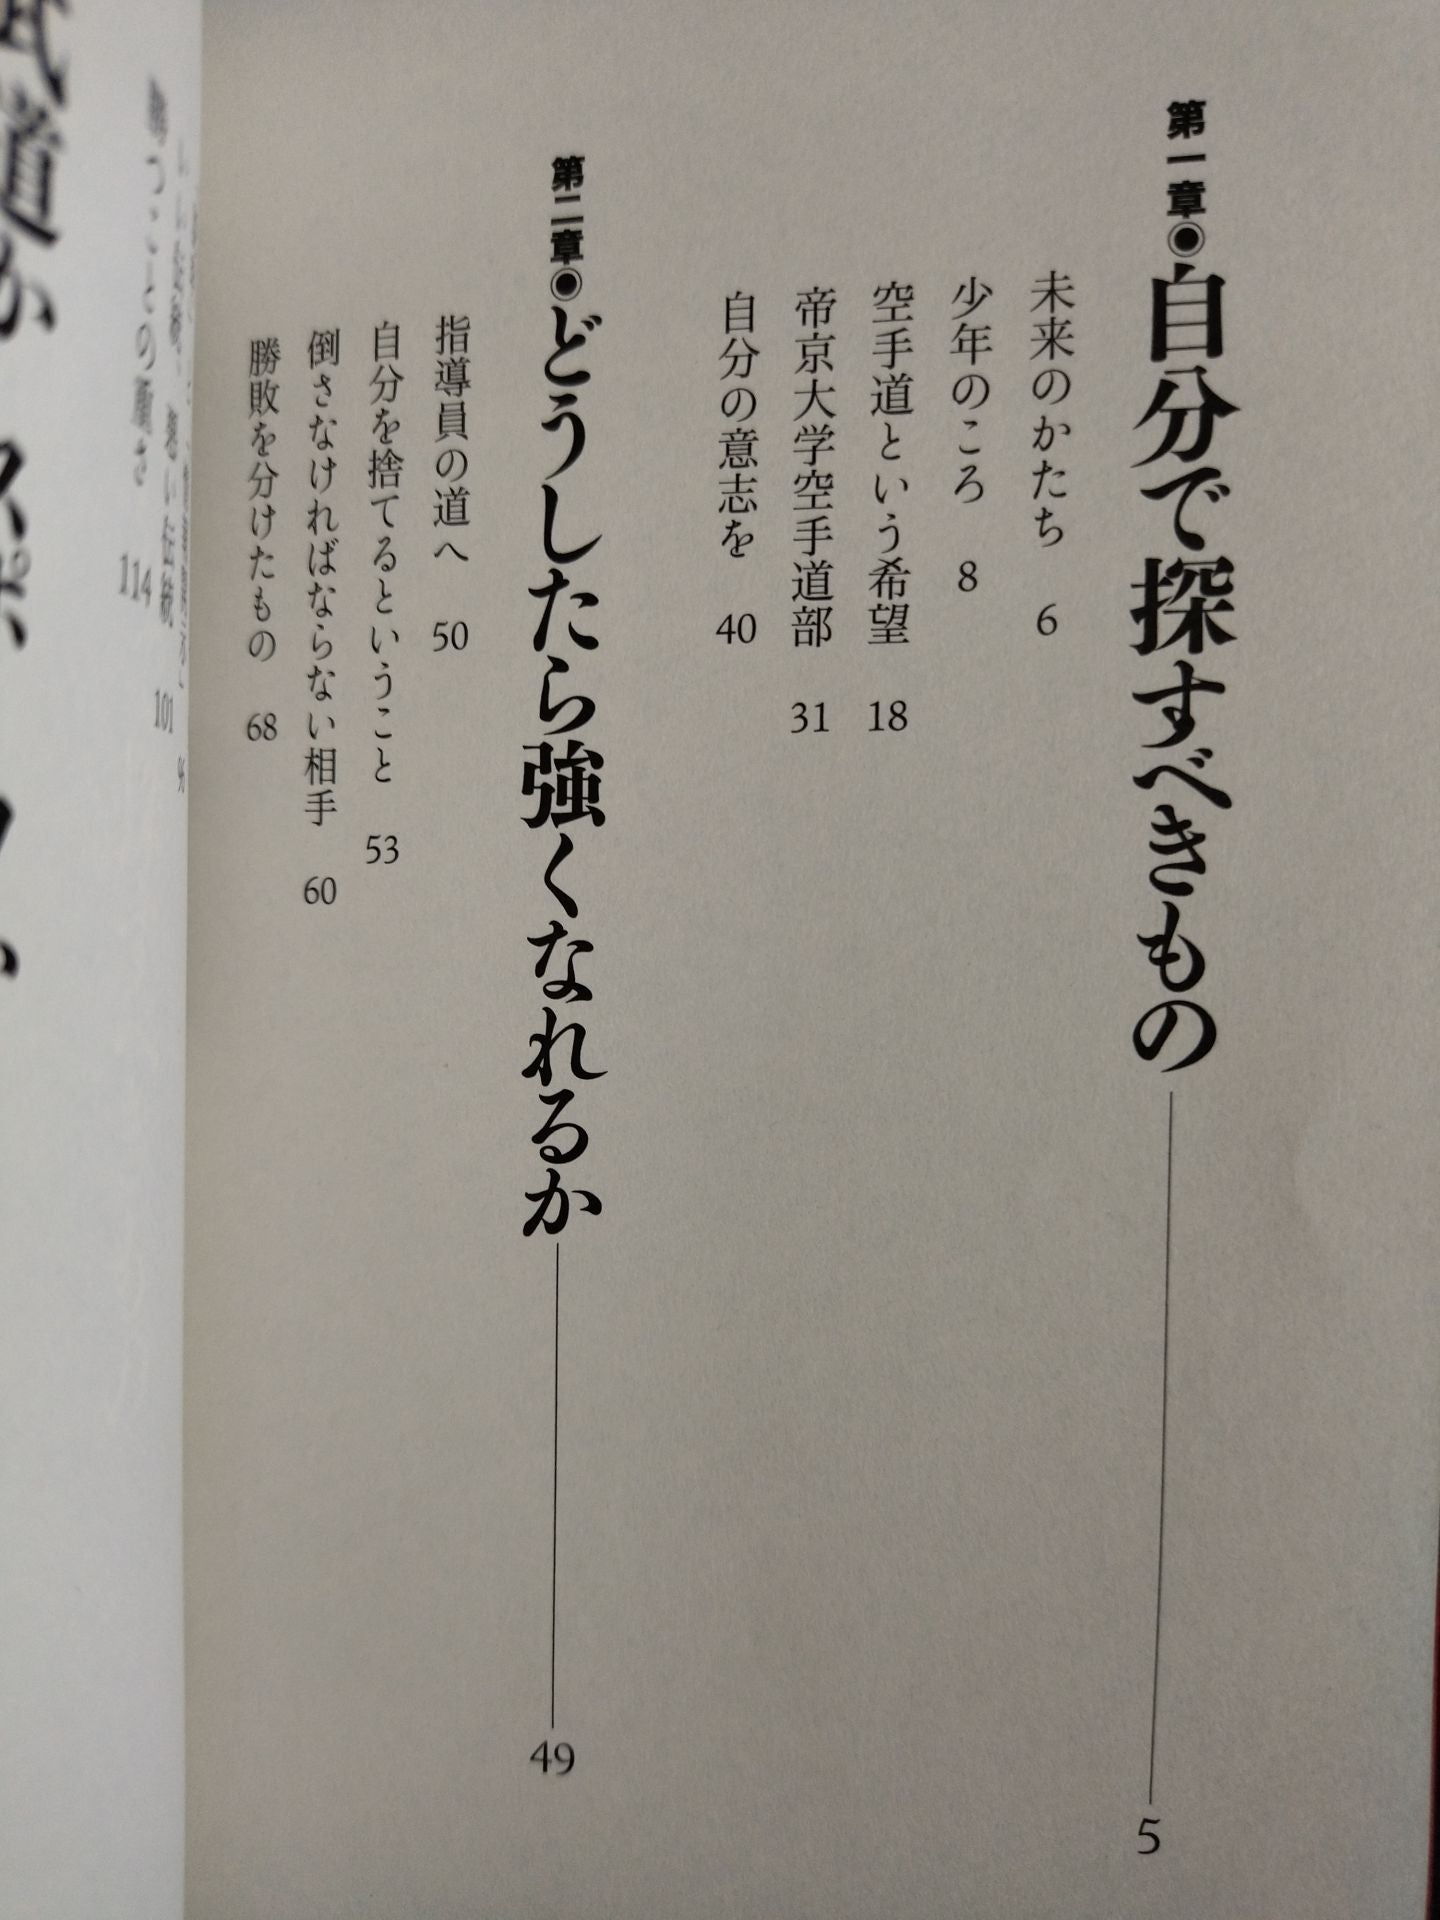 第一章◉自分で探すべきもの 5
未来のかたち 6
少年のころ 8
空手道という希望 18
帝京大学空手道部 31
自分の意志を 40
第二章◉どうしたら強くなれるか 49
指導員の道へ 50
自分を捨てるということ 53
倒さなければならない相手 60
勝敗を分けたもの 68
96
悪い伝統 101
勝つことの 114
武道か スポーツか